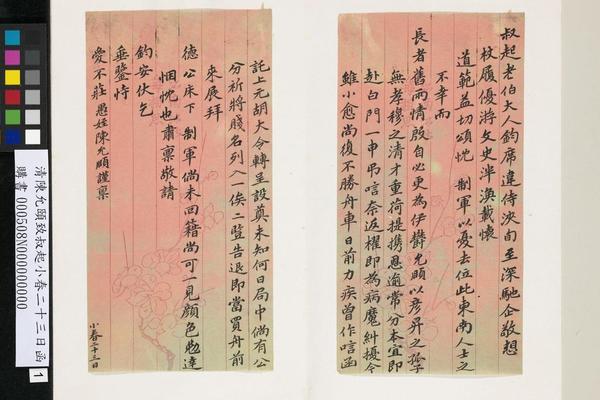 叔起老伯大人鈞席違侍浹旬至深馳企敬想
杖履優游文史半渙載懷
道範益切頌忱 制軍以憂去位此東南人士之
不幸而
長者舊雨情殷自必更為伊鬱允頤以彥昇之孫
無孝穆之清才重荷提携恩逾常分本宜即
赴白門一申弔唁奈返櫂即為病魔糾擾今
雖小愈尚復不勝舟車日前力疾曾作唁函
託上元胡大令轉呈設奠未知何日局中倘有公
分祈將賤名列入一俟二豎告退即當買舟前
來展拜
德公床下 制軍倘未回籍尚可一見顏色勉達
悃忱也肅稟敬請
鈞安伏乞
垂鑒恃
愛不莊愚姪陳允頤謹稟
小春二十三日
清陳允頤致叔起小春二十三日函
購書 000508N000000000
1